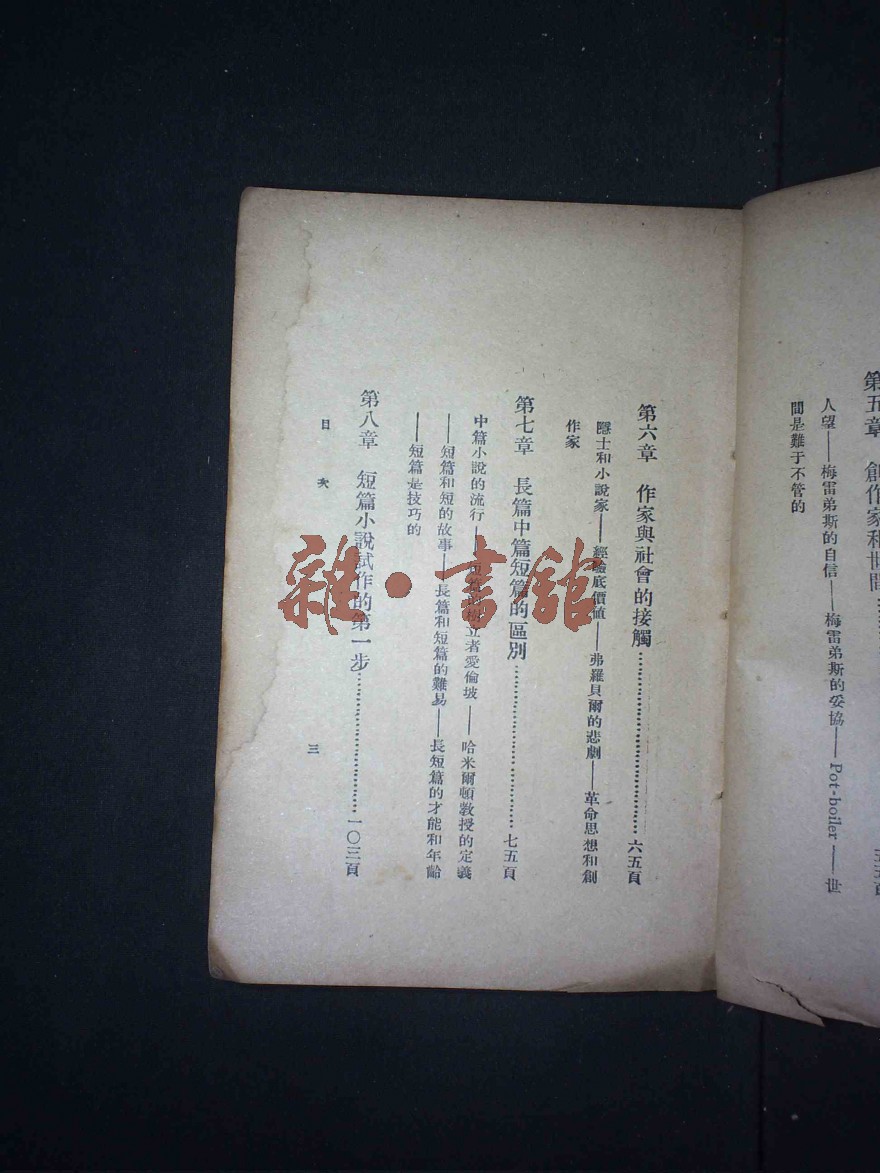 第五章 創作家和世間
人望——梅雷弟斯的自信——梅雷弟斯的妥協——Pot-boiler——世
間是難于不管的
第六章 作家與社會的接觸……六五頁
隱士和小說家——經驗底價値——弗羅貝爾的悲劇——革命思想和創
作家
第七章 長篇中篇短篇的區別……七五頁
中篇小說的流行——短篇的樹立者愛倫坡——哈米爾頓敎授的定義
——短篇和短的故事——長篇和短篇的難易——長短篇的才能和年齡
——短篇是技巧的
第八章 短篇小說試作的第一步……一〇三頁
目次
三
雜·書館